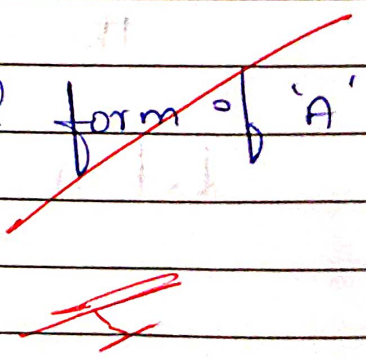 form of 'A'